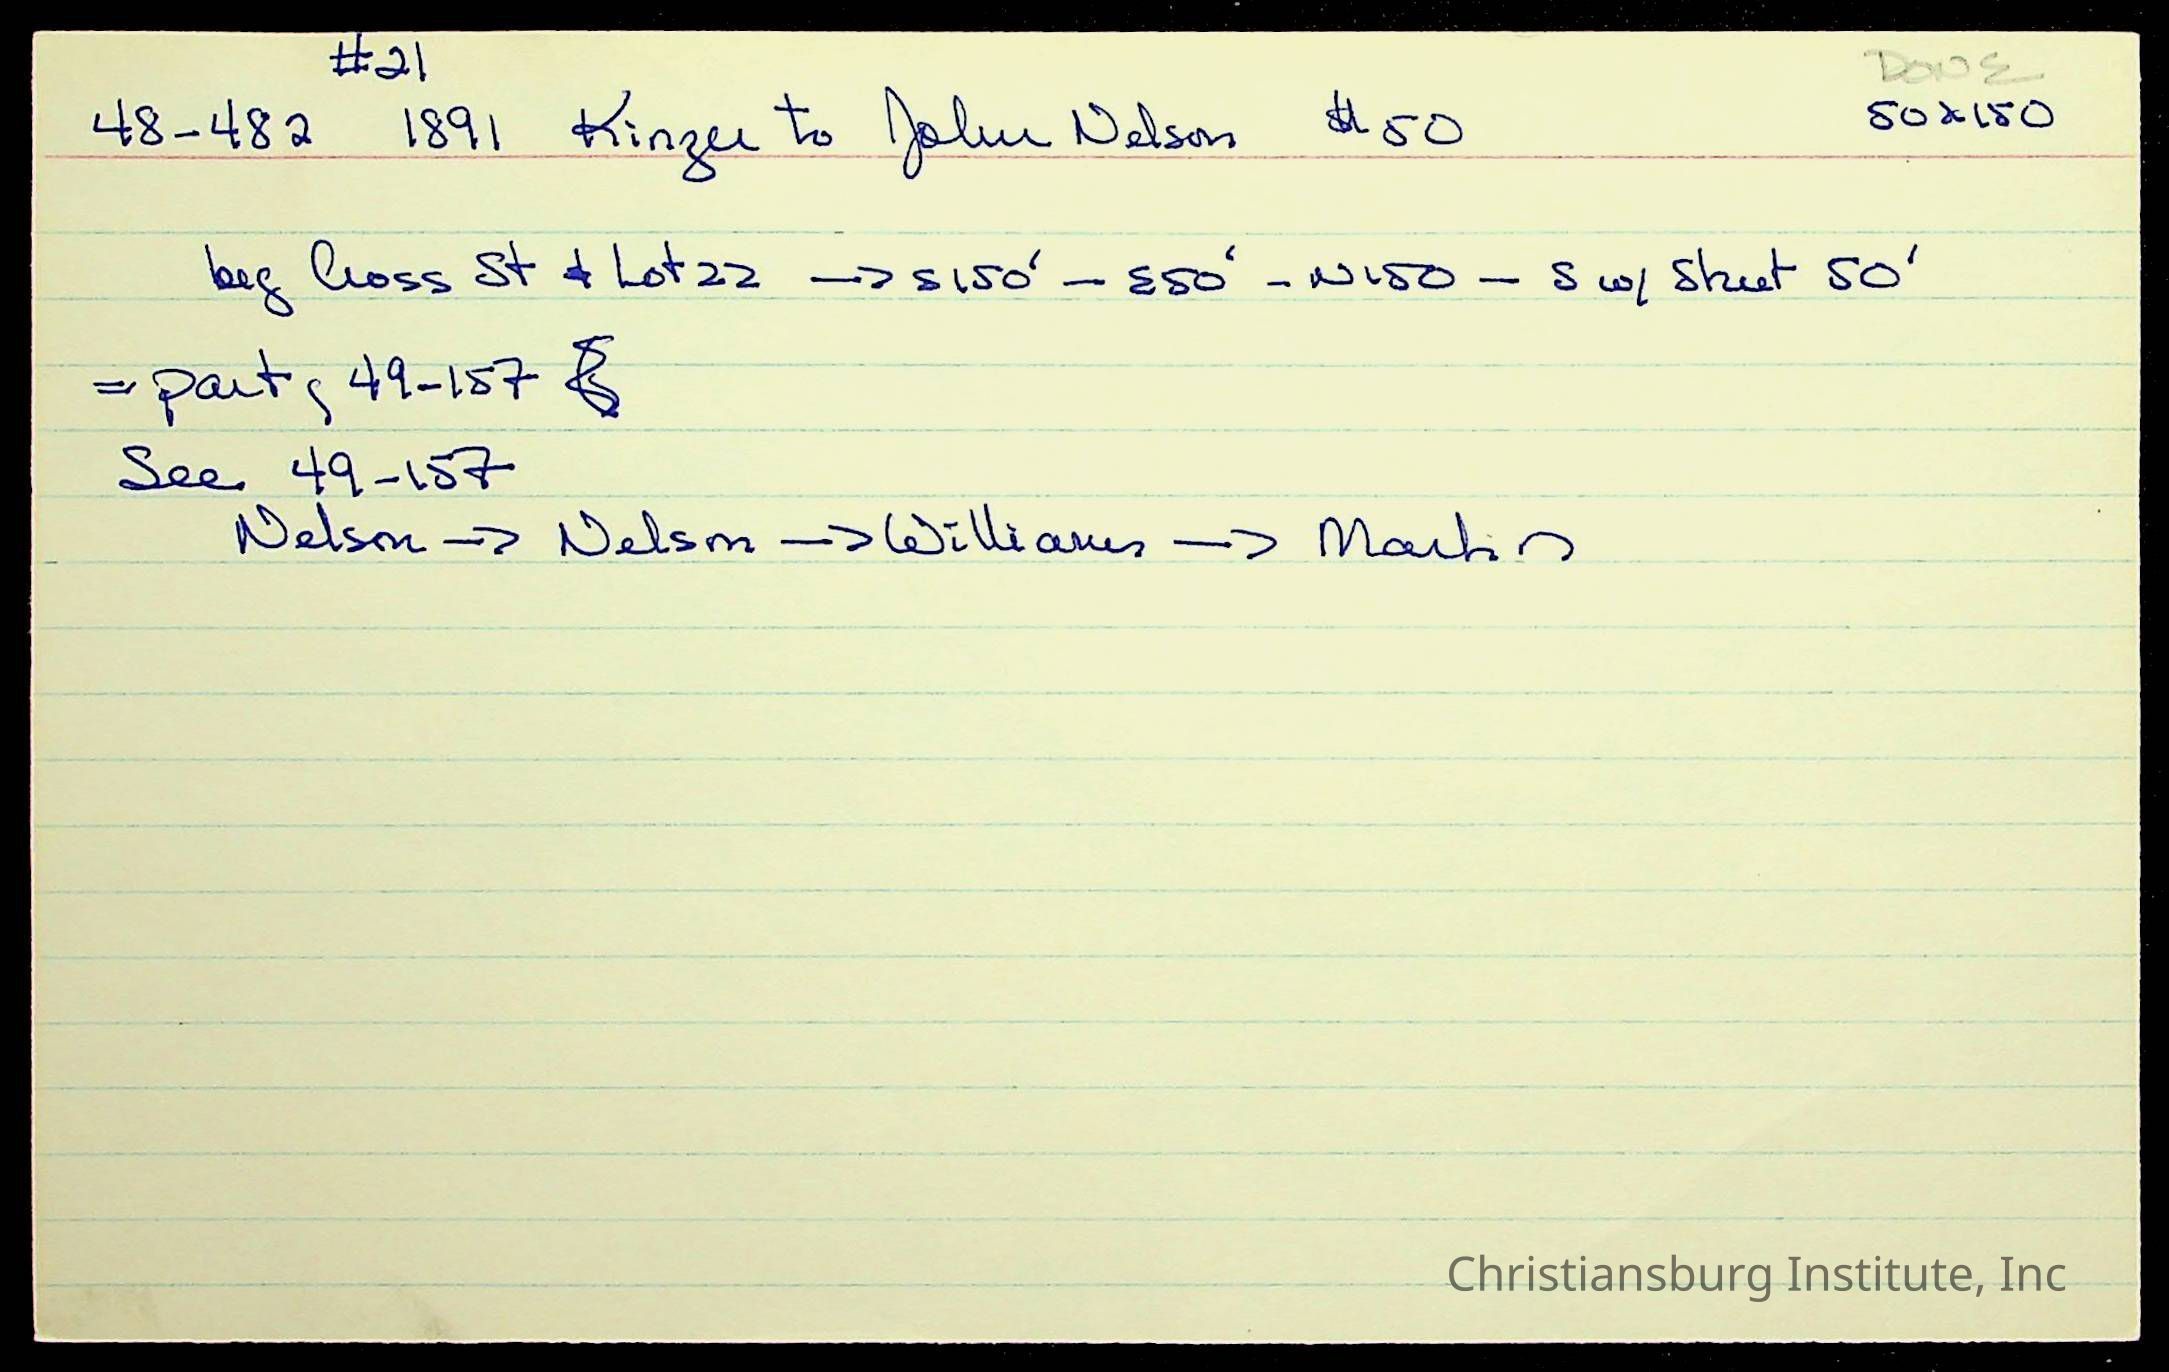 #21 DONE
48-482 1891 Kinzer to John Nelson $50 50x150
beg Cross St & Lot 22 -> S150' - E50' - N150 - S w/ Street 50'
= part, 49-157
See 49-157
Nelson -> Nelson -> Williams -> Martin
Christiansburg Institute, Inc